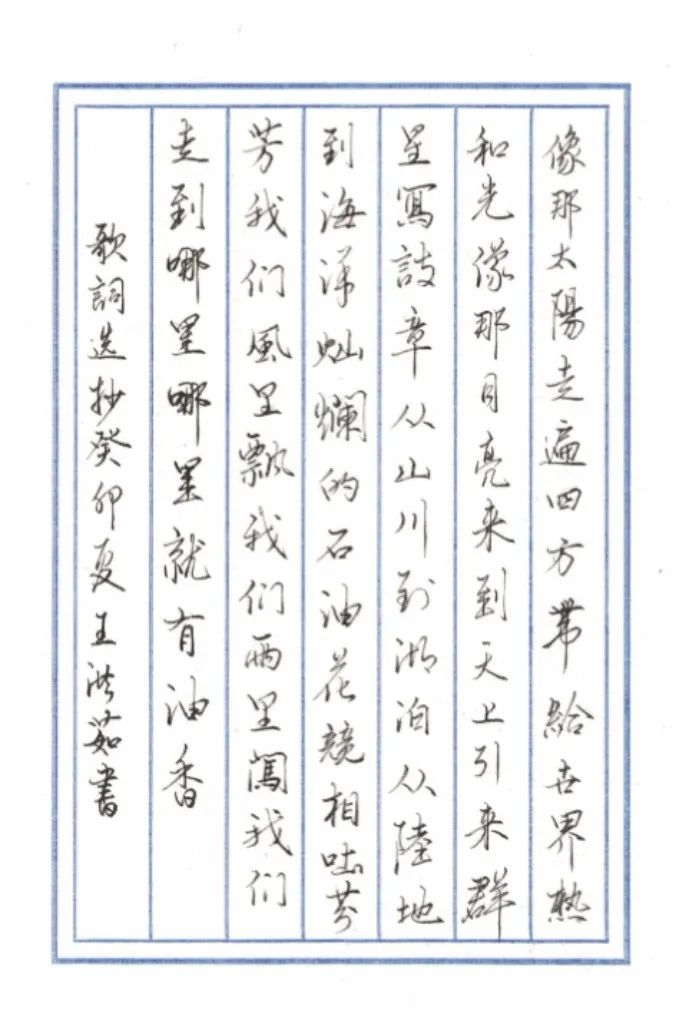 像那太陽走遍四方帶給世界热
和光像那月亮来到天上引来群
星寫詩章从山川到湖泊从陸地
到海洋灿爛的石油花競相吐芬
芳我们風里飄我们雨里闖我们
走到哪里哪里就有油香
歌詞选抄癸卯夏王洪茹書